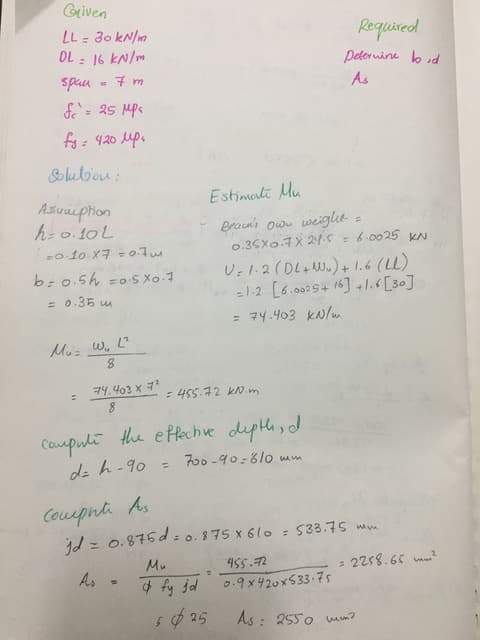 Given
LL = 30 kN/m
DL = 16 kN/m
span = 7 m
fc' = 25 MPa
fy = 420 MPa
Required
Determine b, d
As
Solution:
Assumption
h = 0.10L
= 0.10 x7 = 0.7 m
b = 0.5h = 0.5 x 0.7
= 0.35 m
Estimate Mu
- Beam's own weight =
0.35x0.7 x 24.5 = 6.0025 kN
U = 1.2 (DL+Wu) + 1.6 (LL)
= 1.2 [6.0025 + 16] + 1.6 [30]
= 74.403 kN/m
Mu = wu L² / 8
= 74.403 x 7² / 8 = 455.72 kN.m
compute the effective depth, d
d = h - 90 = 700 - 90 = 610 mm
Compute As
jd = 0.875d = 0.875 x 610 = 533.75 mm
As = Mu / φ fy jd = 455.72 / 0.9 x 420 x 533.75 = 2258.65 mm²
5 φ 25 As: 2550 mm²